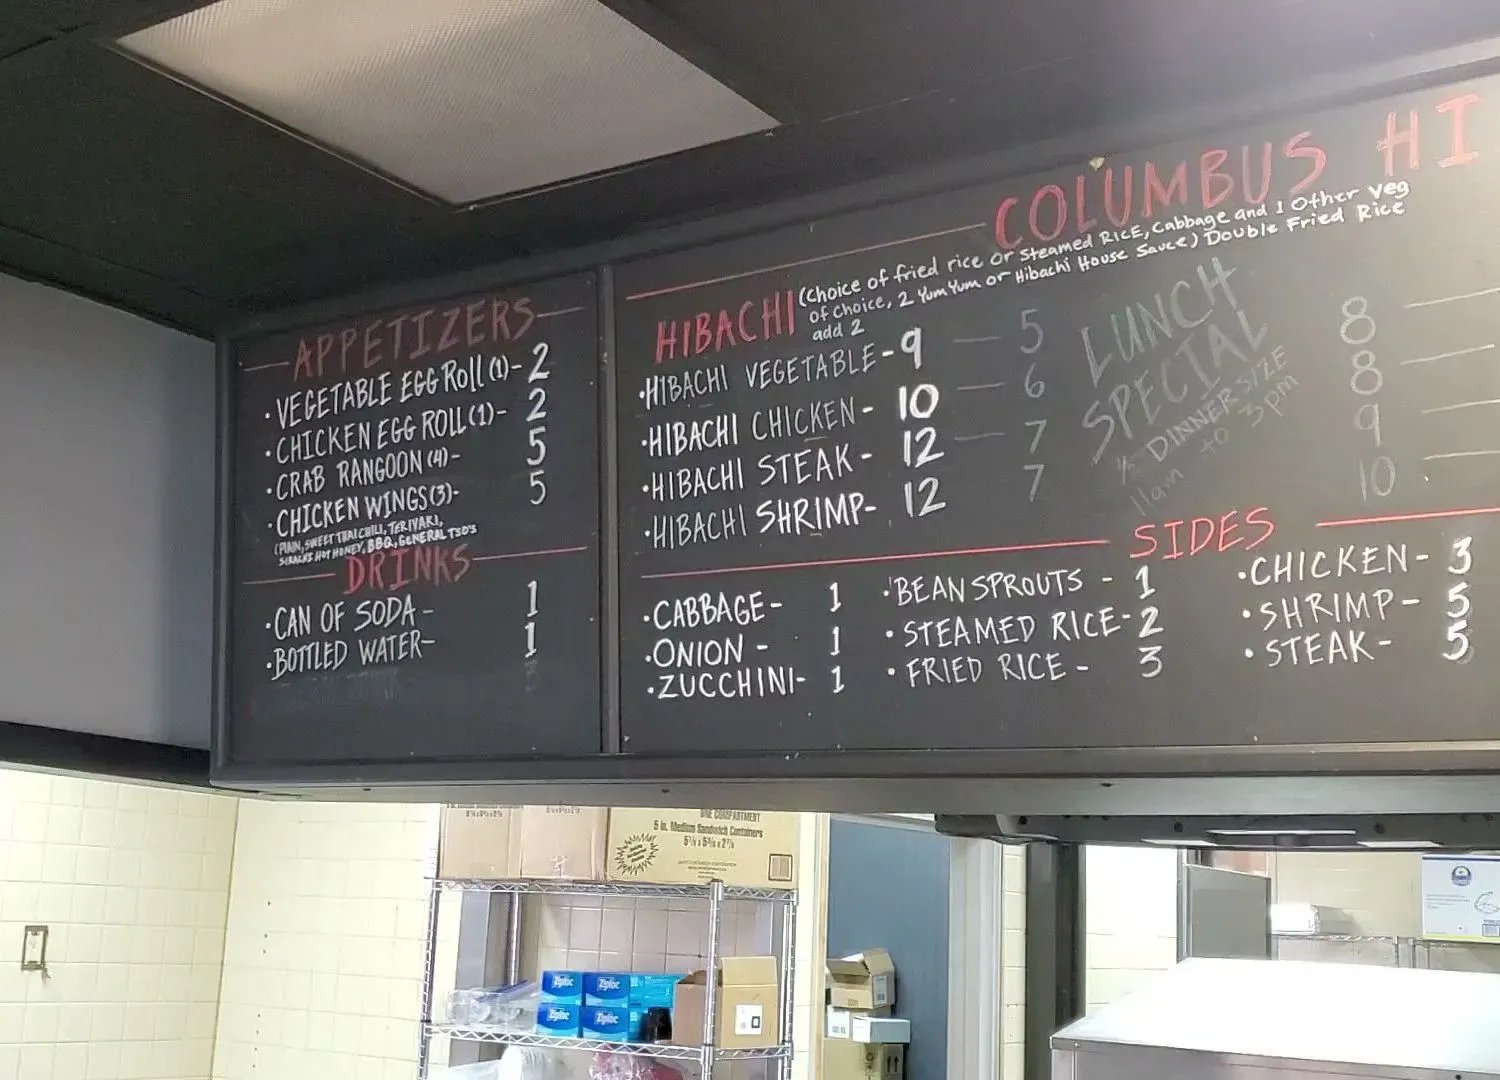 COLUMBUS HI
APPETIZERS
• VEGETABLE EGG ROLL (1) - 2
• CHICKEN EGG ROLL (1) - 2
• CRAB RANGOON (4) - 5
• CHICKEN WINGS (3) - 5
(PLAIN, SWEET THAI CHILI, TERIYAKI,
SIRACHA HOT HONEY, BBQ, GENERAL TSO'S
DRINKS
• CAN OF SODA - 1
• BOTTLED WATER - 1
HIBACHI (Choice of fried rice or Steamed RICE, Cabbage and 1 Other Veg
of choice, 2 YumYum or Hibachi House Sauce) Double Fried Rice
add 2
• HIBACHI VEGETABLE - 9 — 5
• HIBACHI CHICKEN - 10 — 6
• HIBACHI STEAK - 12 — 7
• HIBACHI SHRIMP - 12 7
LUNCH
SPECIAL
1/2 DINNER SIZE
11am to 3pm
8
8
9
10
SIDES
• CABBAGE - 1
• ONION - 1
• ZUCCHINI - 1
• BEAN SPROUTS - 1
• STEAMED RICE - 2
• FRIED RICE - 3
• CHICKEN - 3
• SHRIMP - 5
• STEAK - 5
ONE COMPARTMENT
5 in. Medium Sandwich Containers
Ziploc
Ziploc
Ziploc
Ziploc